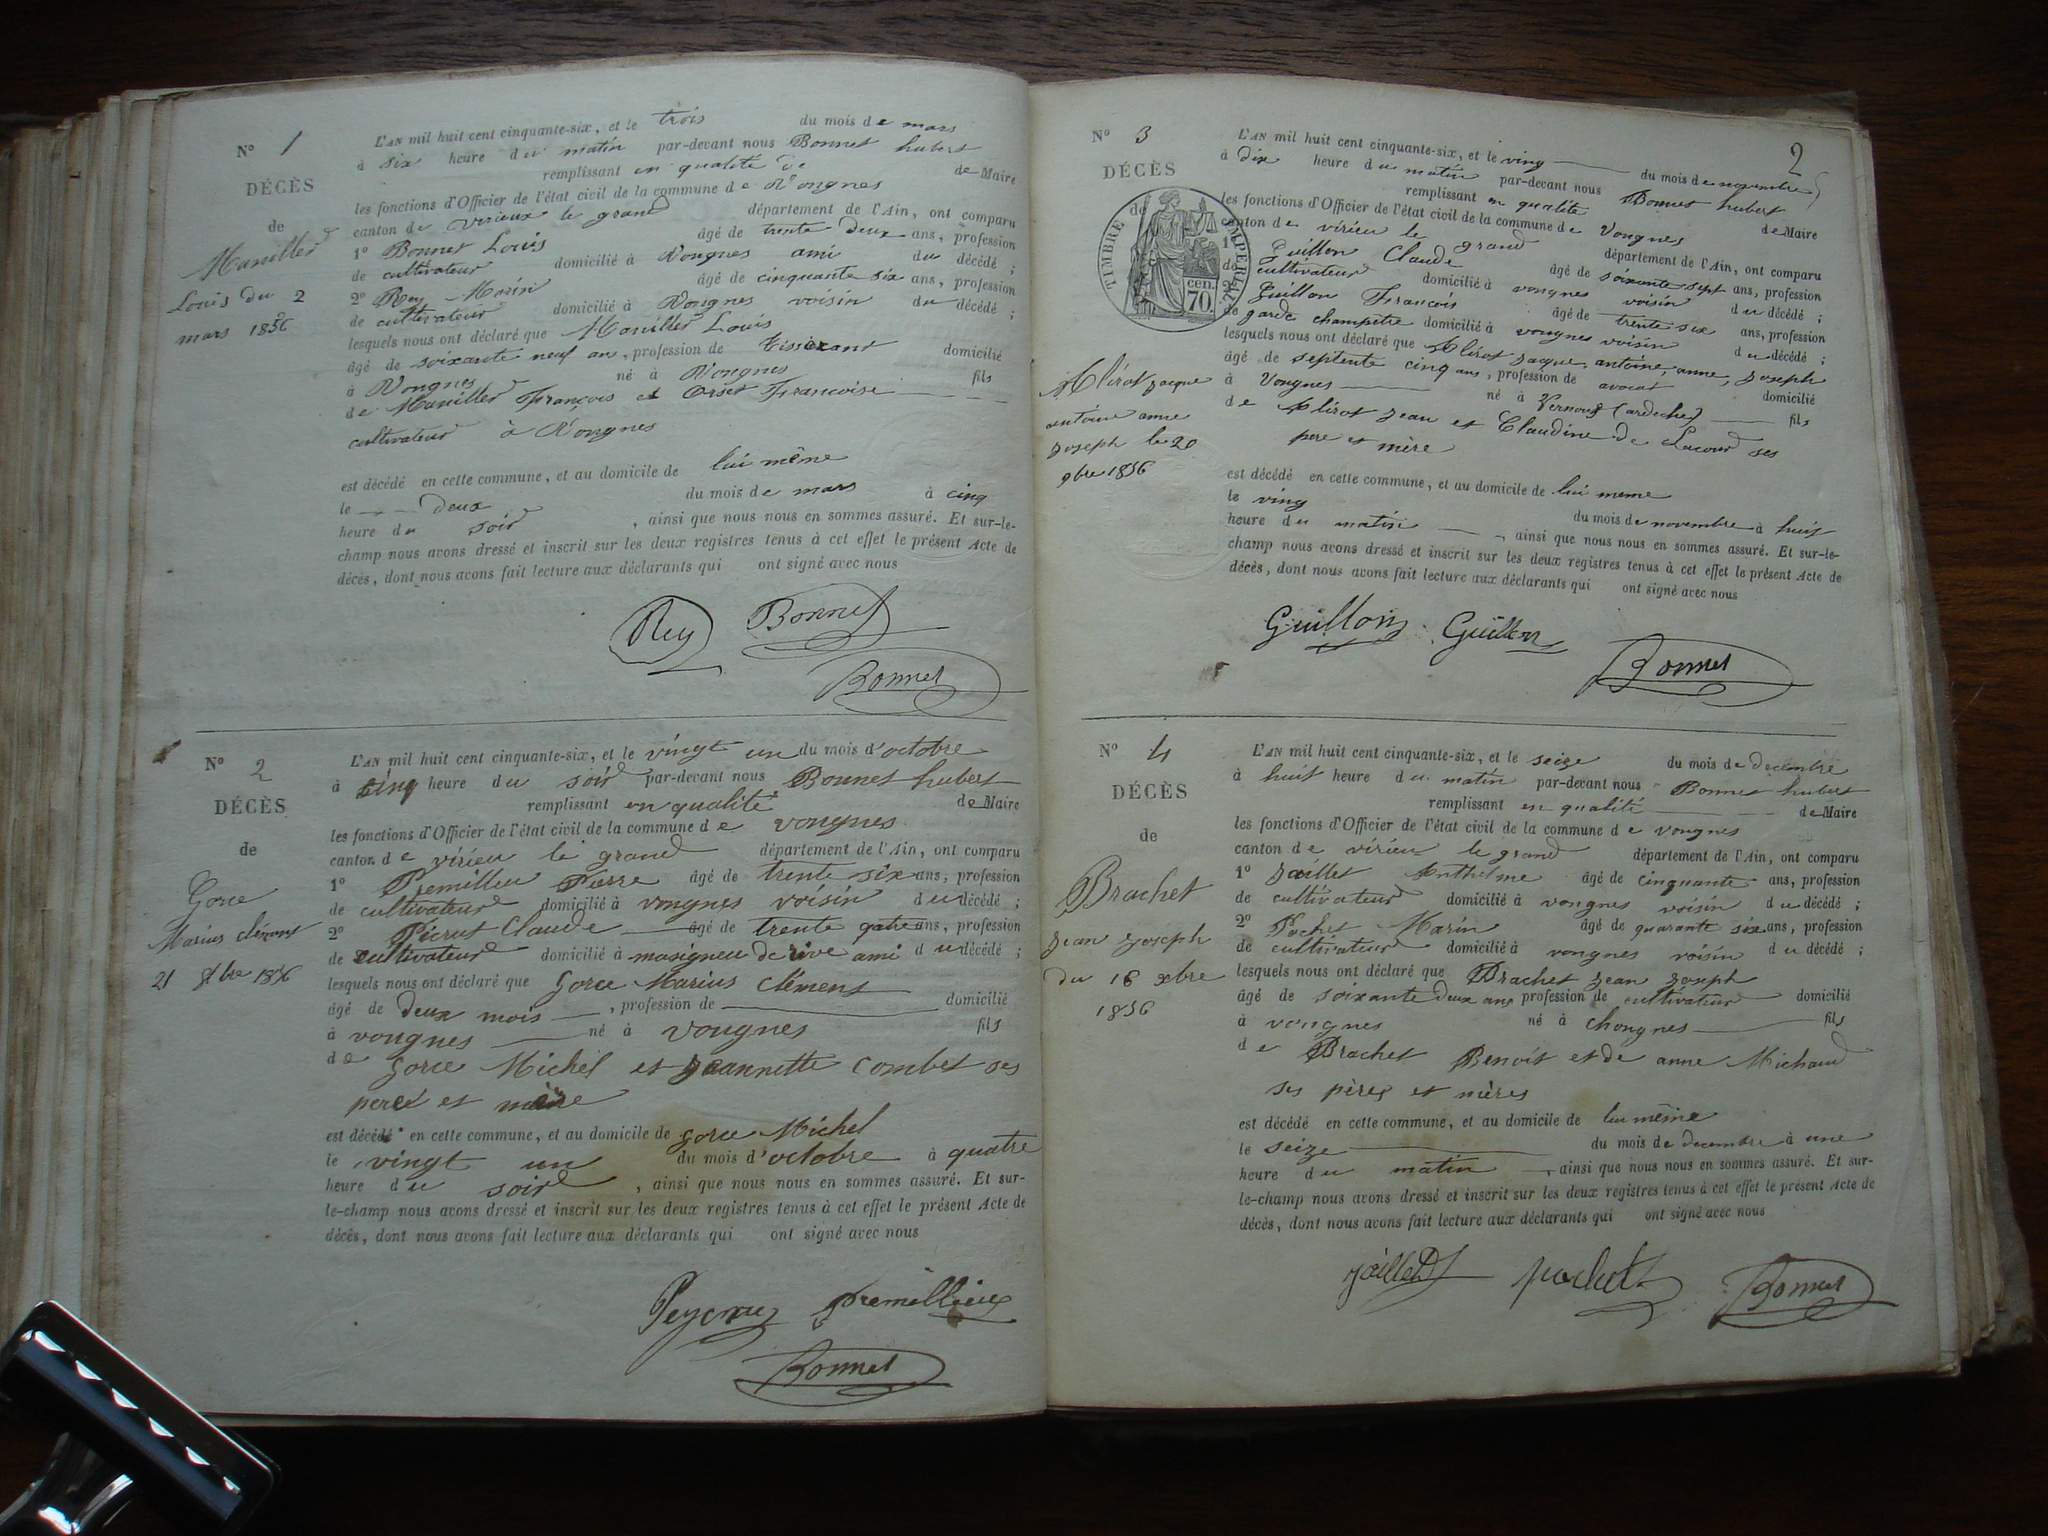 N° 1
DÉCÈS
de
Maniller
Louis du 2
mars 1856
L'AN mil huit cent cinquante-six, et le trois du mois de mars
à six heure du matin par-devant nous Bonnet hubert
remplissant en qualité de de Maire
les fonctions d'Officier de l'état civil de la commune de Vongnes
canton de virieux le grand département de l'Ain, ont comparu
1° Bonnet Louis âgé de trente deux ans, profession
de cultivateur domicilié à Vongnes ami du décédé ;
2° Rey Marin âgé de cinquante six ans, profession
de cultivateur domicilié à Vongnes voisin du décédé ;
lesquels nous ont déclaré que Maniller Louis
âgé de soixante neuf an, profession de Tisserand domicilié
à Vongnes né à Vongnes fils
de Maniller François et Orset Francoise
cultivateur à Vongnes
est décédé en cette commune, et au domicile de lui même
le deux du mois de mars à cinq
heure du soir, ainsi que nous nous en sommes assuré. Et sur-le-
champ nous avons dressé et inscrit sur les deux registres tenus à cet effet le présent Acte de
décès, dont nous avons fait lecture aux déclarants qui ont signé avec nous
Rey Bonnet
Bonnet
N° 2
DÉCÈS
de
Gorce
Marius clémens
21 8bre 1856
L'AN mil huit cent cinquante-six, et le vingt un du mois d'octobre
à cinq heure du soir par-devant nous Bonnet hubert
remplissant en qualité de Maire
les fonctions d'Officier de l'état civil de la commune de vongnes
canton de virieu le grand département de l'Ain, ont comparu
1° Premilleu Pierre âgé de trente six ans, profession
de cultivateur domicilié à vongnes voisin du décédé ;
2° Claude âgé de trente quatre ans, profession
de cultivateur domicilié à masigneu de rive ami du décédé ;
lesquels nous ont déclaré que Gorce Marius clémens
âgé de deux mois, profession de domicilié
à vongnes né à vongnes fils
de Gorce Michel et jeannette Combet ses
pere et mère
est décédé en cette commune, et au domicile de Gorce Michel
le vingt un du mois d'octobre à quatre
heure du soir, ainsi que nous nous en sommes assuré. Et sur-
le-champ nous avons dressé et inscrit sur les deux registres tenus à cet effet le présent Acte de
décès, dont nous avons fait lecture aux déclarants qui ont signé avec nous
premillieu
Bonnet
2
N° 3
DÉCÈS
de
TIMBRE IMPERIAL
70 cen.
jacque
antoine anne
joseph le 20
9bre 1856
L'AN mil huit cent cinquante-six, et le ving du mois de novembre
à dix heure du matin par-devant nous Bonnet hubert
remplissant en qualité de Maire
les fonctions d'Officier de l'état civil de la commune de Vongnes
canton de virieu le grand département de l'Ain, ont comparu
1° Guillon Claude âgé de soixante sept ans, profession
de cultivateur domicilié à vongnes voisin du décédé ;
2° Guillon François âgé de trente six ans, profession
de garde champêtre domicilié à vongnes voisin du décédé ;
lesquels nous ont déclaré que jacque, antoine, anne, joseph
âgé de septente cinq ans, profession de avocat domicilié
à Vongnes né à Vernoux (ardeche) fils
de jean et Claudine de Lacour ses
pere et mère
est décédé en cette commune, et au domicile de lui meme
le ving du mois de novembre à huit
heure du matin, ainsi que nous nous en sommes assuré. Et sur-le-
champ nous avons dressé et inscrit sur les deux registres tenus à cet effet le présent Acte de
décès, dont nous avons fait lecture aux déclarants qui ont signé avec nous
Guillon Guillon
Bonnet
N° 4
DÉCÈS
de
Brachet
jean joseph
du 16 xbre
1856
L'AN mil huit cent cinquante-six, et le seize du mois de decembre
à huit heure du matin par-devant nous Bonnet hubert
remplissant en qualité de Maire
les fonctions d'Officier de l'état civil de la commune de vongnes
canton de virieu le grand département de l'Ain, ont comparu
1° jaillet Anthelme âgé de cinquante ans, profession
de cultivateur domicilié à vongnes voisin du décédé ;
2° Pochet Marin âgé de quarante six ans, profession
de cultivateur domicilié à vongnes voisin du décédé ;
lesquels nous ont déclaré que Brachet jean joseph
âgé de soixante deux ans profession de cultivateur domicilié
à vongnes né à chongnes fils
de Brachet Benoit et de anne Michaud
ses pères et mères
est décédé en cette commune, et au domicile de lui même
le seize du mois de decembre à une
heure du matin, ainsi que nous nous en sommes assuré. Et sur-
le-champ nous avons dressé et inscrit sur les deux registres tenus à cet effet le présent Acte de
décès, dont nous avons fait lecture aux déclarants qui ont signé avec nous
jaillet pochet Bonnet